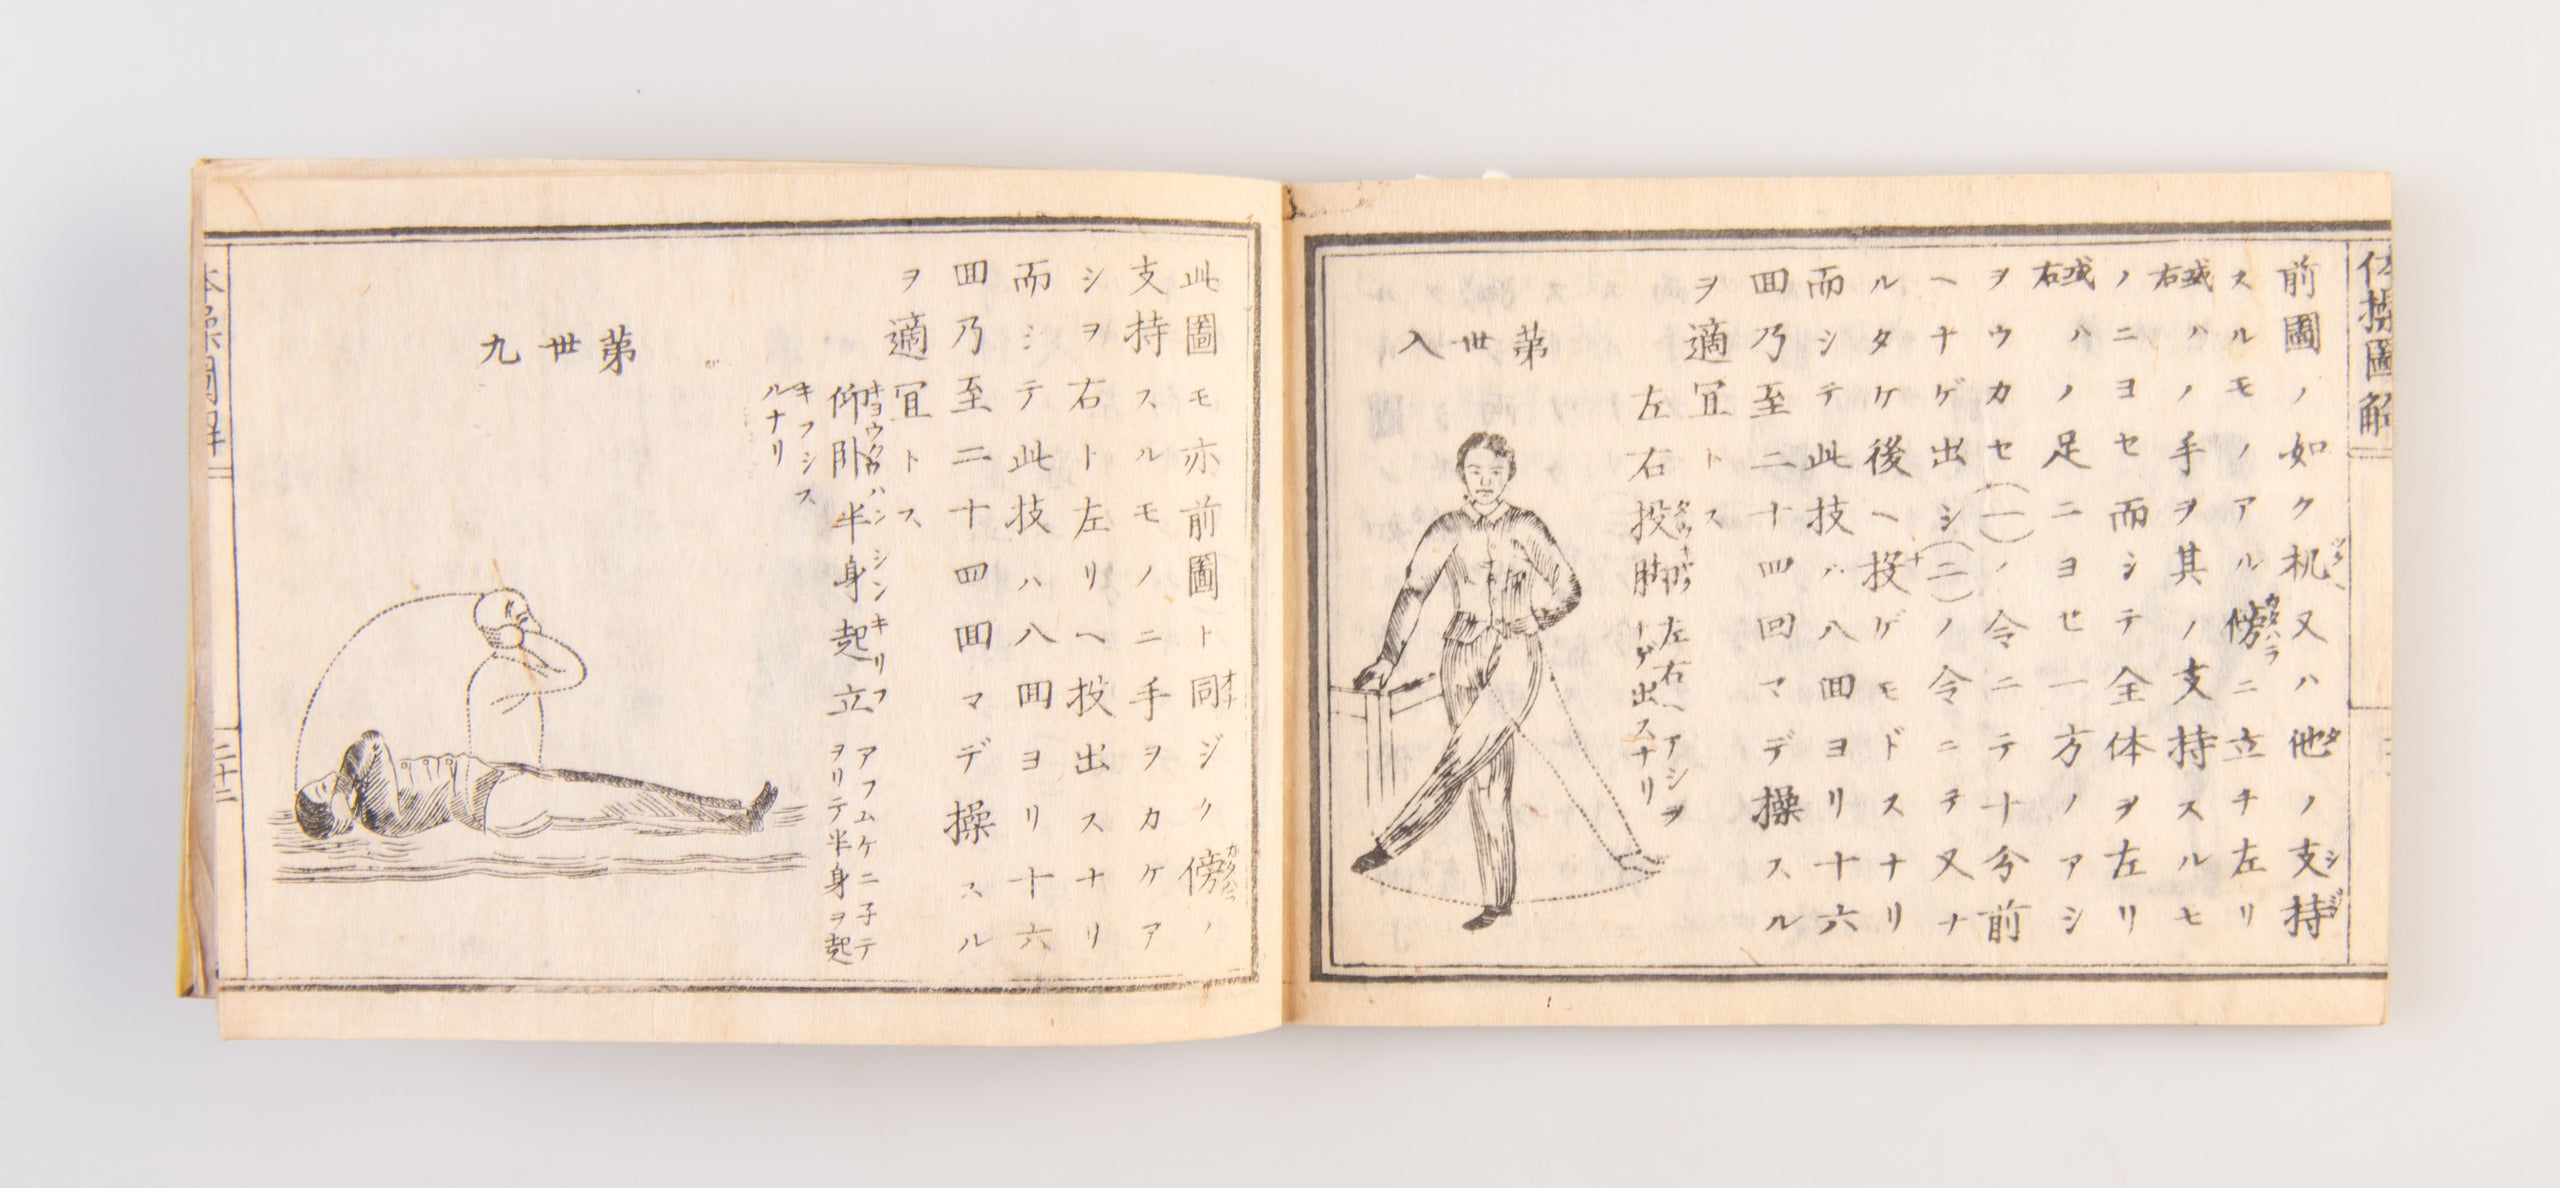 体操圖解
前圖ノ如ク机又ハ他ノ支持
スルモノヽアル傍ニ立チ左リ
或ハ右ノ手ヲ其ノ支持スルモ
ノニヨセ而シテ全体ヲ左リ
或ハ右ノ足ニヨセ一方ノアシ
ヲウカセ(一)ノ令ニテ十分前
ヘナゲ出シ(二)ノ令ニテ又ナ
ルタケ後ヘ投ゲモドスナリ
而シテ此技ハ八回ヨリ十六
回乃至二十四回マデ操スル
ヲ適宜トス
左右投脚
左右ヘアシヲ
ナゲ出スナリ
第卅八
此圖モ亦前圖ト同ジク傍ノ
支持スルモノニ手ヲカケア
シヲ右ト左リヘ投出スナリ
而シテ此技ハ八回ヨリ十六
回乃至二十四回マデ操スル
ヲ適宜トス
仰臥半身起立
キヨウグワハンシンキリフ
アフムケニ子テ
ヲリテ半身ヲ起
キフシス
ルナリ
第卅九
体操圖解
二十二